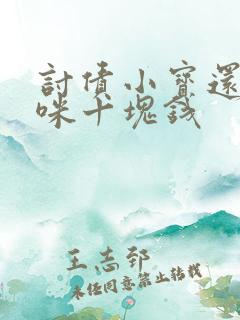 討債小寶還
咪十塊錢
王志郅
未经同意禁止转载